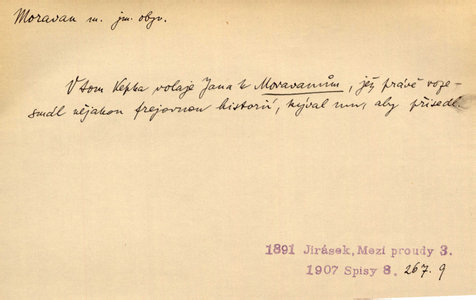 Moravan m. jm. obyv.
V tom Kepka volaje Jana k Moravanům, jež právě roze-
smál nějakou frejovnou historií, kýval mu, aby přisedl.
1891 Jirásek, Mezi proudy 3.
1907 Spisy 8. 267.9